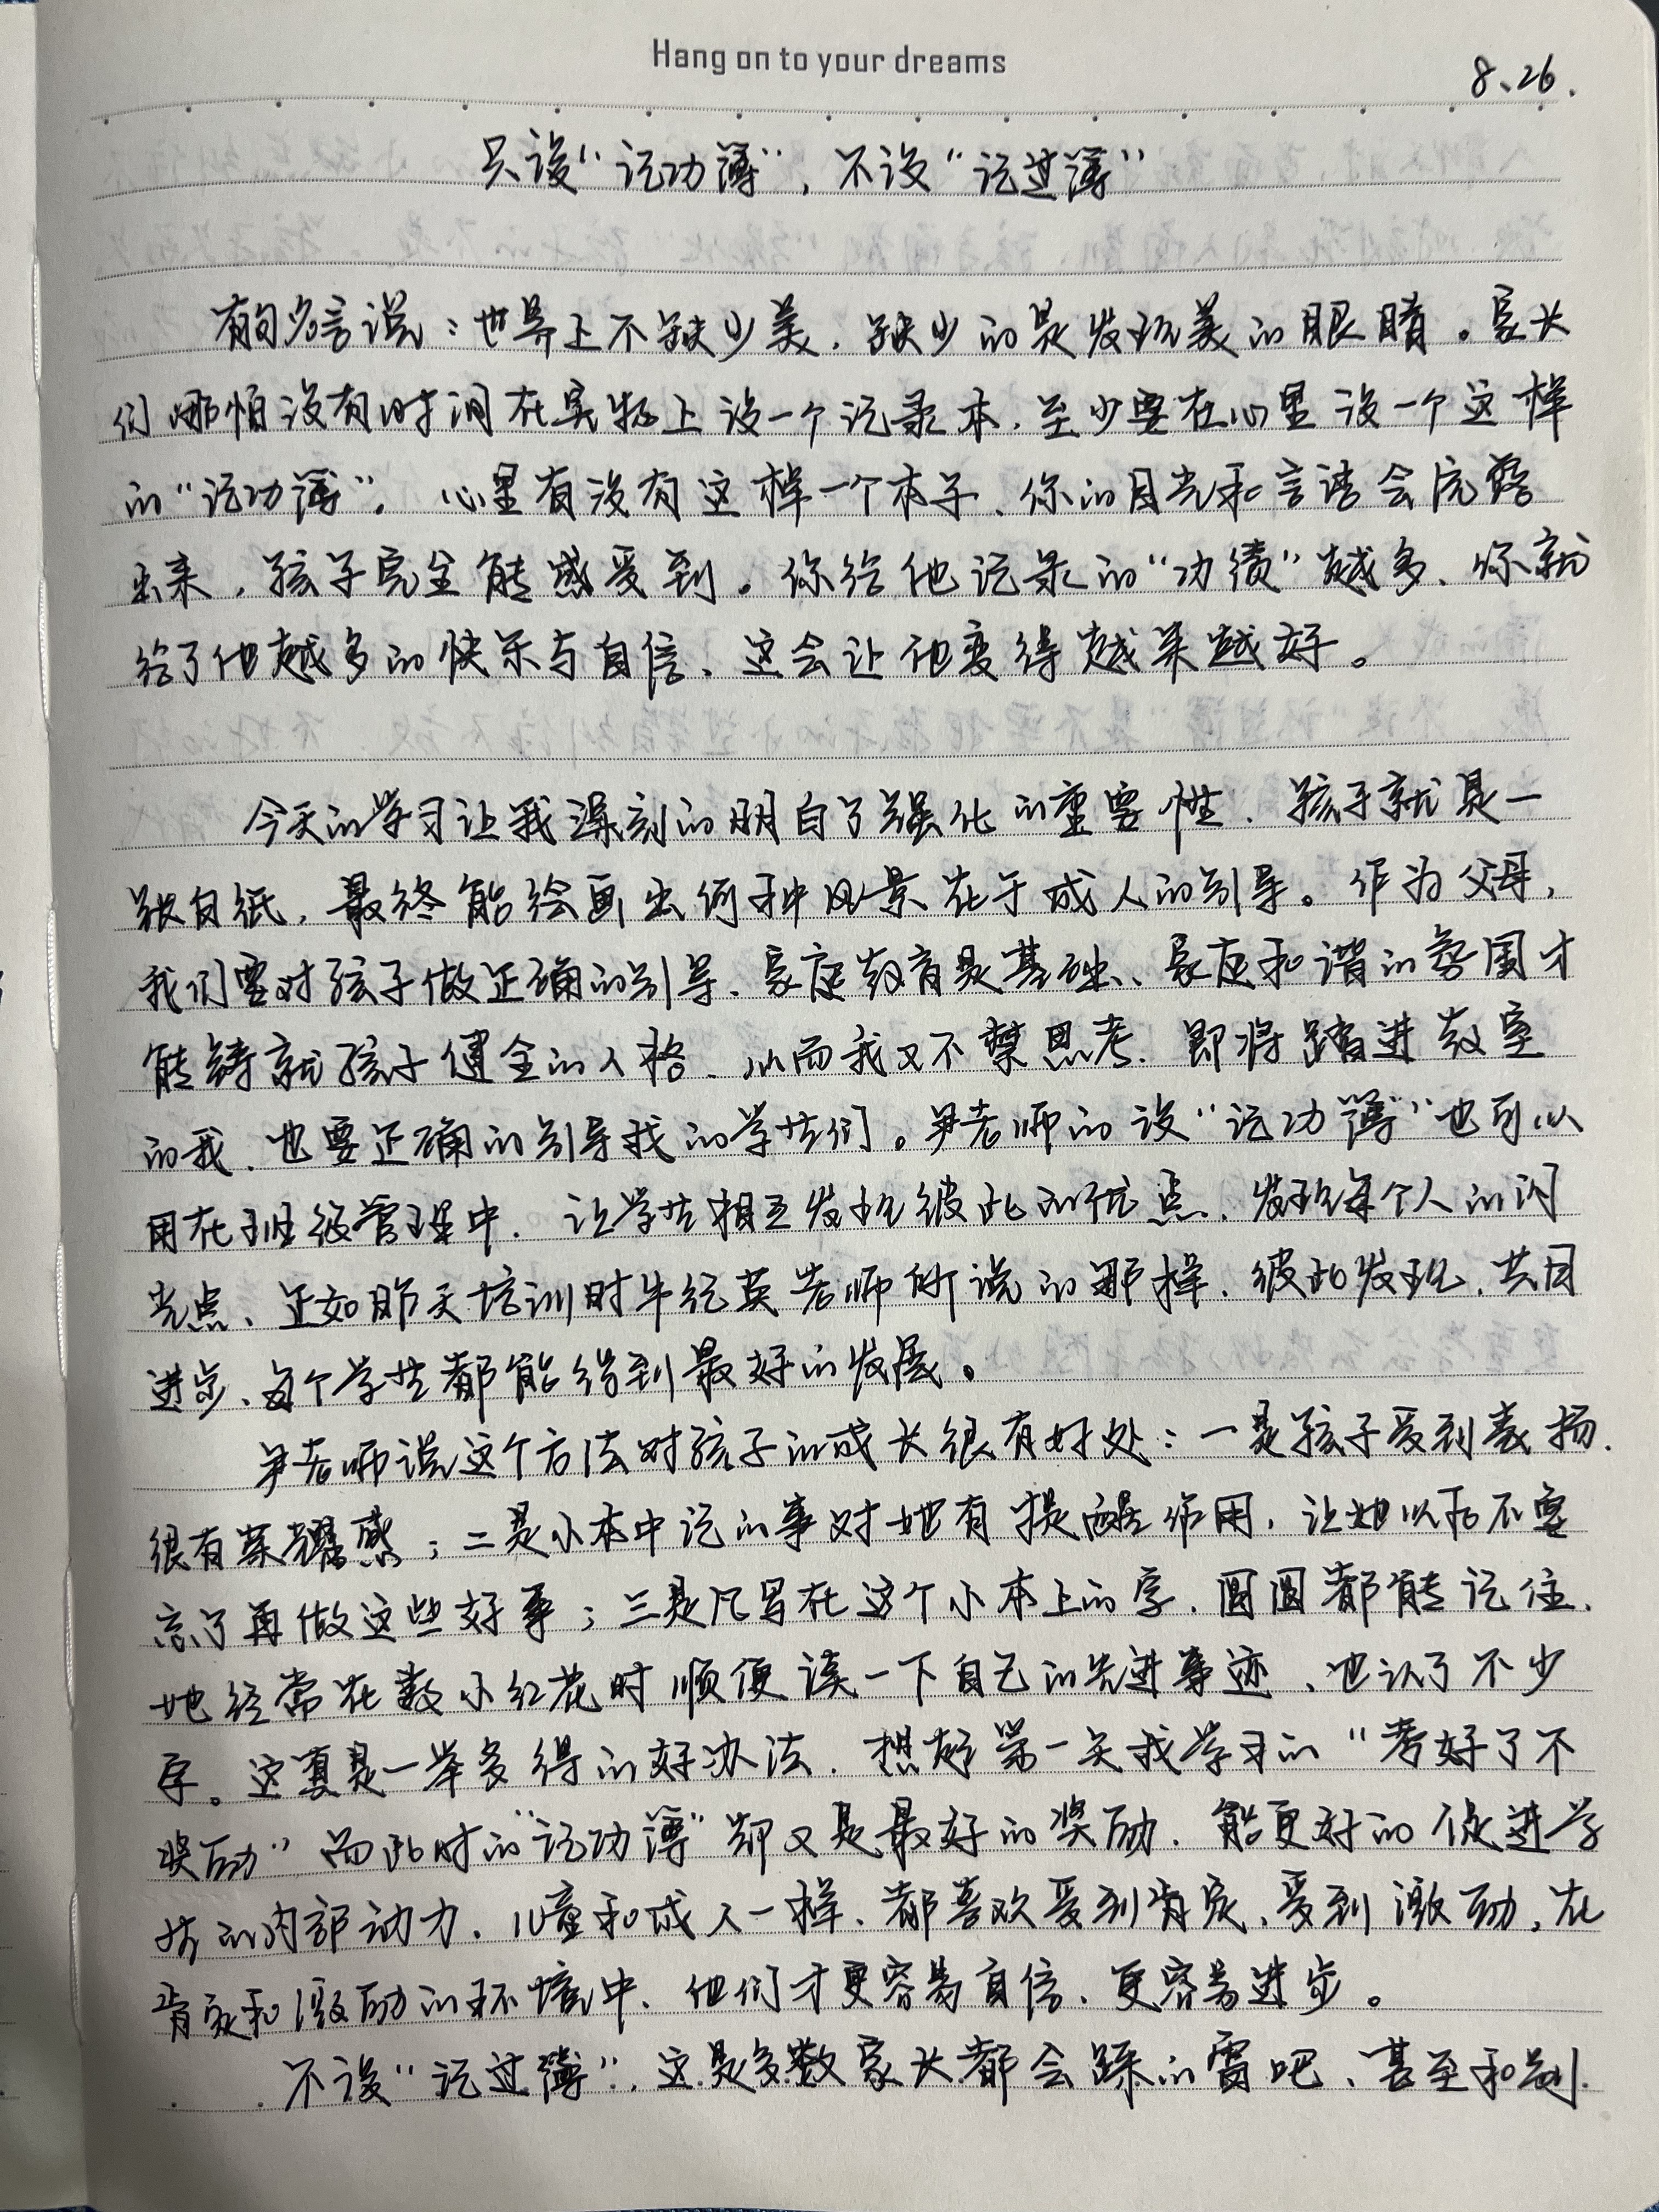 Hang on to your dreams
8、26.
只设“记功薄”，不设“记过薄”
有句名言说：世界上不缺少美，缺少的是发现美的眼睛。家长
们哪怕没有时间在实物上设一个记录本，至少要在心里设一个这样
的“记功薄”。心里有没有这样一个本子、你的目光和言语会流露
出来，孩子完全能感受到。你给他记录的“功绩”越多、你就
给了他越多的快乐与自信、这会让他变得越来越好。
今天的学习让我深刻的明白了强化的重要性．孩子就是一
张白纸，最终能绘画出何种风景在于成人的引导。作为父母，
我们要对孩子做正确的引导、家庭教育是基础、家庭和谐的氛围才
能铸就孩子健全的人格、从而我又不禁思考．即将踏进教室
的我、也要正确的引导我的学生们。尹老师的设“记功薄”也可以
用在班级管理中．让学生相互发现彼此的优点、发现每个人的闪
光点、正如昨天培训时牛红英老师所说的那样、彼此发现，共同
进步、每个学生都能得到最好的发展。
尹老师说这个方法对孩子的成长很有好处：一是孩子受到表扬．
很有荣耀感；二是小本中记的事对她有提醒作用，让她以后不要
忘了再做这些好事；三是凡写在这个小本上的字、圆圆都能记住．
她经常在数小红花时顺便读一下自己的先进事迹、也认了不少
字。这真是一举多得的好办法．想起第一天我学习的“考好了不
奖励”而此时的“记功薄”却又是最好的奖励．能更好的促进学
生的内部动力．儿童和成人一样、都喜欢受到肯定、受到激励，在
肯定和激励的环境中、他们才更容易自信、更容易进步。
不设“记过薄”．这是多数家长都会踩的雷吧、甚至和别